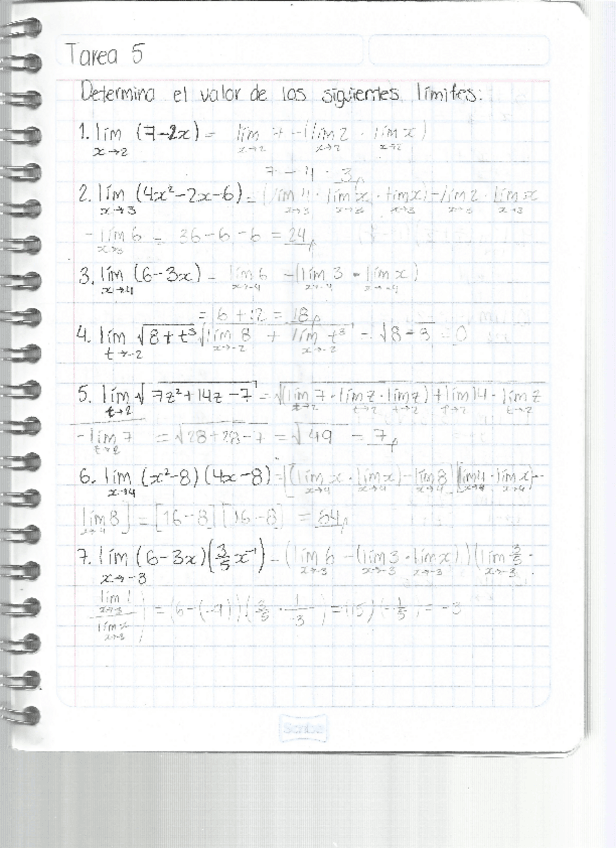 Tarea 5
Determina el valor de los siguientes límites:
1. lím x→2 (7-2x) = lím x→2 7 - (lím x→2 2 · lím x→2 x)
7 - 4 = 3
2. lím x→3 (4x²-2x-6) = (lím x→3 4 · lím x→3 x · lím x→3 x) - lím x→3 2 · lím x→3 x
- lím x→3 6 = 36-6-6 = 24
3. lím x→4 (6-3x) = lím x→4 6 - (lím x→4 3 · lím x→4 x)
= 6 + 12 = 18
4. lím t→-2 √8+t³ √lím x→-2 8 + lím x→-2 t³ = √8-8 = 0
5. lím t→2 √7z²+14z-7 = √(lím t→2 7 · lím t→2 z · lím t→2 z) + lím t→2 14 · lím t→2 z
- lím t→2 7 = √28+28-7 = √49 = 7
6. lím x→4 (x²-8)(4x-8) = [(lím x→4 x · lím x→4 x) - lím x→4 8] [(lím x→4 4 · lím x→4 x) -
lím x→4 8] = [16-8] [16-8] = 64
7. lím x→-3 (6-3x)(3/5 x⁻¹) = (lím x→-3 6 - (lím x→-3 3 · lím x→-3 x)) (lím x→-3 3/5 ·
lím x→-3 1 / lím x→-3 x) = (6-(-9)) (3/5 · 1/-3) = (15) (-1/5) = -3
Scribe